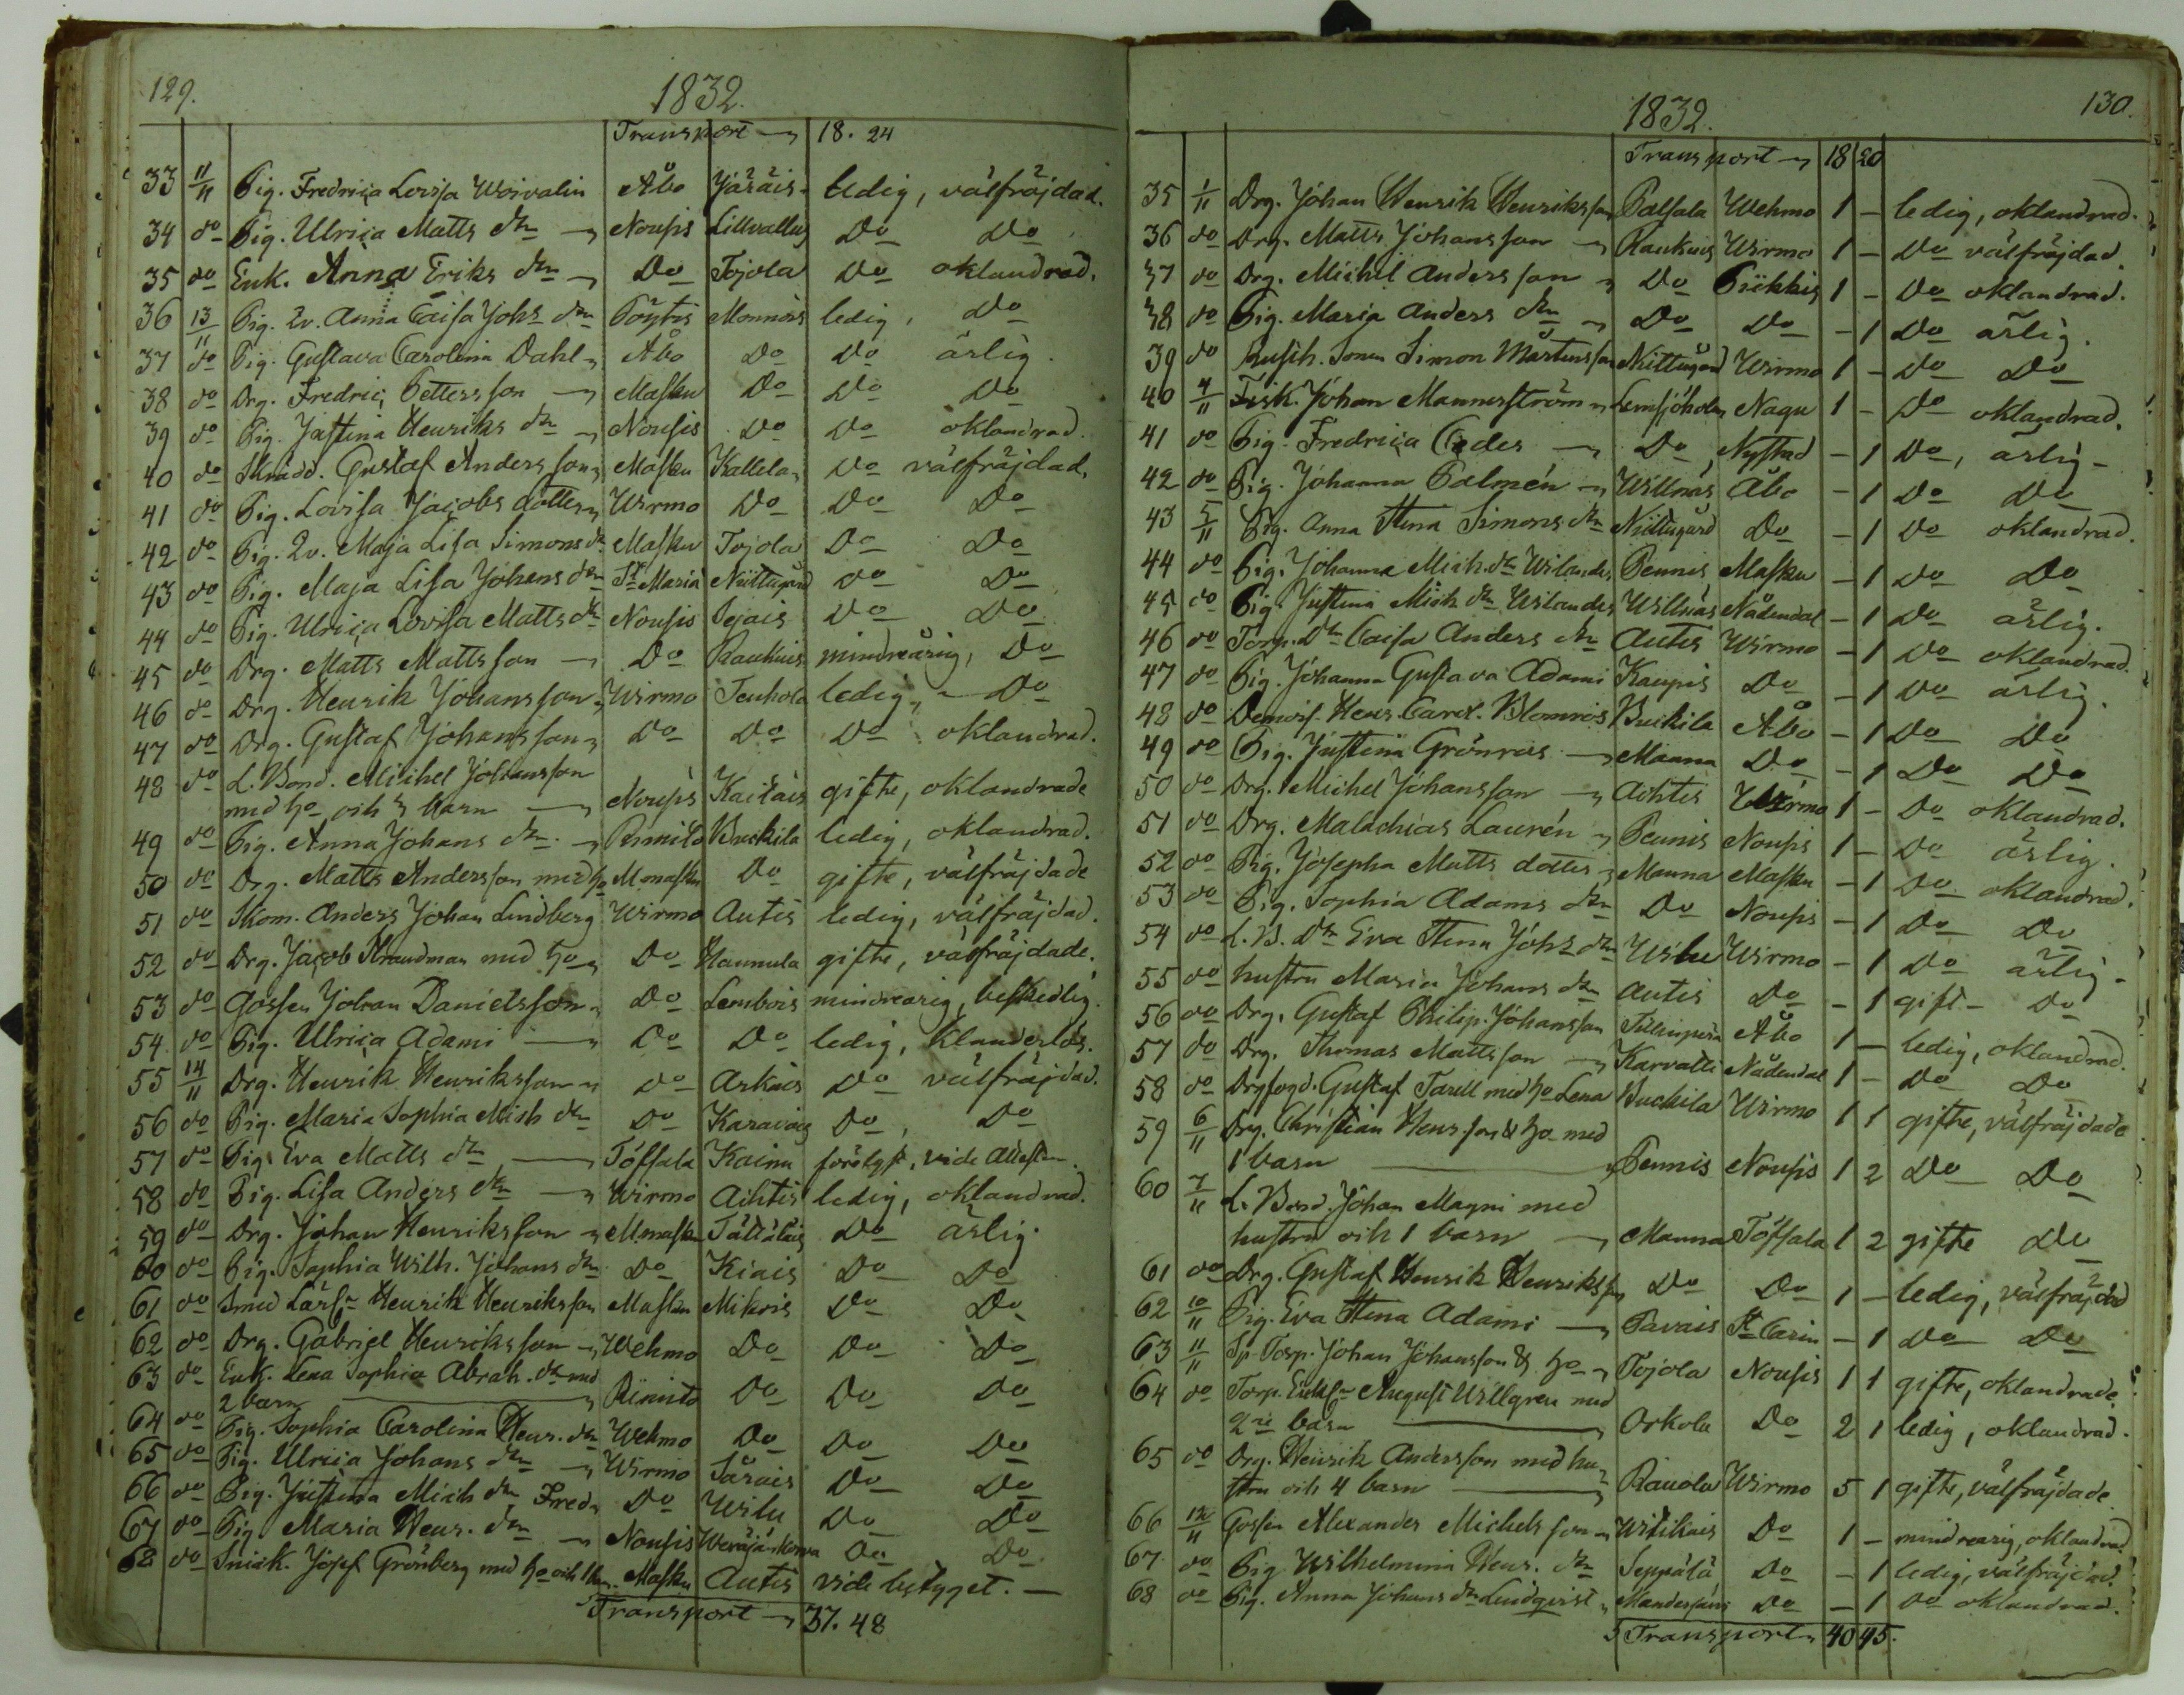 129.
1832.
Transport 18. 24
33 11/11 Pig. Fredrica Lovisa Woivalin Åbo Järäis ledig, välfräjdad.
34 do Pig. Ulrica Matts dtr Nousis Lillvallus Do Do
35 do Enk. Anna Eriks dtr Do Tojola Do oklandrad.
36 13/11 Pig. Qv. Anna Caisa Johs dtr Pöytis Monnois ledig, Do
37 do Pig. Gustava Carolina Dahl Åbo Do Do ärlig.
38 do Drg. Fredric Pettersson Masku Do Do Do
39 do Pig. Justina Henriks dtr Nousis Do Do oklandrad.
40 do Skrädd. Gustaf Andersson Masku Kallela Do välfräjdad,
41 do Pig. Lovisa Jacobs dotter Wirmo Do Do Do
42 do Pig. Qv. Maja Lisa Simons dr Masku Tojola Do Do
43 do Pig. Maja Lisa Johans dtr St Maria Niittugård Do Do
44 do Pig. Ulrica Lovisa Matts dr Nousis Sejais Do Do
45 do Drg. Matts Mattsson Do Raukuis mindreårig, Do
46 do Drg. Henrik Johansson Wirmo Tenhola ledig, Do
47 do Drg. Gustaf Johansson Do Do Do oklandrad.
48 do L. Bond. Michel Johansson
med ho och 3 barn Nousis Kaitais gifte, oklandrade
49 do Pig. Anna Johans dtr Rimito Buckila ledig, oklandrad.
50 do Drg. Matts Andersson med ho M.masku Do gifte, välfräjdade
51 do Skom. Anders Johan Lindberg Wirmo Autis ledig, välfräjdad.
52 do Drg. Jacob Strandman med ho Do Hannula gifte, välfräjdade.
53 do Gossen Johan Danielsson Do Lembois mindreårig, beskedlig.
54 do Pig. Ulrica Adami Do Do ledig, klanderlös.
55 14/11 Drg. Henrik Henriksson Do Arkais Do välfräjdad.
56 do Pig. Maria Sophia Mich dtr Do Karavais Do, Do
57 do Pig. Eva Matts dtr Töfsala Kainu förelyst, vide Attesten.
58 do Pig. Lisa Anders dtr Wirmo Achtis ledig, oklandrad.
59 do Drg. Johan Henriksson M.masku Tättäläis Do ärlig.
60 do Pig. Sophia Wilh. Johans dtr Do Kiais Do Do
61 do Smed Lärl. Henrik Henriksson Masku Mikois Do Do
62 do Drg. Gabriel Henriksson Wehmo Do Do Do
63 do Enk. Lena Sophia Abrah. dr med
2 barn Rimito Do Do Do
64 do Pig. Sophia Carolina Henr. dtr Wehmo Do Do Do
65 do Pig. Ulrica Johans dtr Wirmo Särais Do Do
66 do Pig. Justina Mich dtr Fred Do Wilu Do Do
67 do Pig. Maria Henr. dtr Nousis Do Do
68 do Snick. Josef Grönberg med ho och 1 barn Masku Autis vide betyget.
Transport 37. 48
130.
1832.
Transport 18 20
35 1/11 Drg. Johan Henrik Henriksson Palsala Wehmo 1 – ledig, oklandrad.
36 do Drg. Matts Johansson Raukuis Wirmo 1 – Do välfräjdad.
37 do Drg. Michel Andersson Do Piikkis 1 – Do oklandrad.
38 do Pig. Maria Anders dtr Do Do – 1 Do ärlig.
39 do Rusth. Sonen Simon Mårtensson Niittugård Wirmo 1 – Do Do
40 4/11 Fisk. Johan Mannerström Lemsjöholm Nagu 1 – Do oklandrad.
41 do Pig. Fredrica Ceder Do Nystad – 1 Do, ärlig
42 do Pig. Johanna Palmén Willnäs Åbo – 1 Do Do
43 5/11 Pig. Anna Stina Simons dtr Niittugård Do – 1 Do oklandrad.
44 do Pig. Johanna Mich. dr Wilander Pennis Masku – 1 Do Do
45 do Pig. Justina Mich dr Wilander Willnäs Nådendal – 1 Do ärlig.
46 do Torp. Dtr Caisa Anders dtr Autis Wirmo – 1 Do oklandrad.
47 do Pig. Johanna Gustava Adami Kaupis Do – 1 Do ärlig.
48 do Demois. Henr. Carol. Blomros Buckila Åbo – 1 Do Do
49 do Pig. Justina Grönroos Manna Do – 1 Do Do
50 do Drg. Michel Johansson Achtis Wirmo 1 – Do oklandrad.
51 do Drg. Malachias Laurén Pennis Nousis 1 – Do ärlig.
52 do Pig. Josepha Matts dotter Manna Masku – 1 Do oklandrad.
53 do Pig. Sophia Adams dtr Do Nousis – 1 Do Do
54 do L. B. Dtr Eva Stina Johs dtr Wilu Wirmo – 1 Do ärlig
55 do hustru Maria Johans dtr Autis Do – 1 gift Do
56 do Drg. Gustaf Philip Johansson Åbo 1 – ledig, oklandrad.
57 do Drg. Thomas Mattsson Karvatti Nådendal 1 – Do Do
58 do Drgfogd. Gustaf Tarell med ho Lena Buckila Wirmo 1 1 gifte, välfräjdade
59 6/11 Drg. Christian Henr.son & ho med
1 barn Pennis Nousis 1 2 Do Do
60 7/11 L. Bond. Johan Magni med
hustru och 1 barn Manna Töfsala 1 2 gifte Do
61 do Drg. Gustaf Henrik Henriksson Do Do 1 – ledig, välfräjdad
62 10/11 Pig. Eva Stina Adami Pavais St Carin – 1 Do Do
63 11/11 Sp. Torp. Johan Johansson & ho Tojola Nousis 1 1 gifte, oklandrade.
64 do Torp. Enkl. August Willgren med
2ne barn Orkola Do 2 1 ledig, oklandrad.
65 do Drg. Henrik Andersson med hu-
stru och 4 barn Rauola Wirmo 5 1 gifte, välfräjdade.
66 12/11 Gossen Alexander Michelsson Witikais Do 1 – mindreårig, oklandrad
67 do Pig. Wilhelmina Henr. dtr Seppälä Do – 1 ledig, välfräjdad.
68 do Pig. Anna Johans dr Lindqvist Do – 1 Do oklandrad.
Transport 40 45.